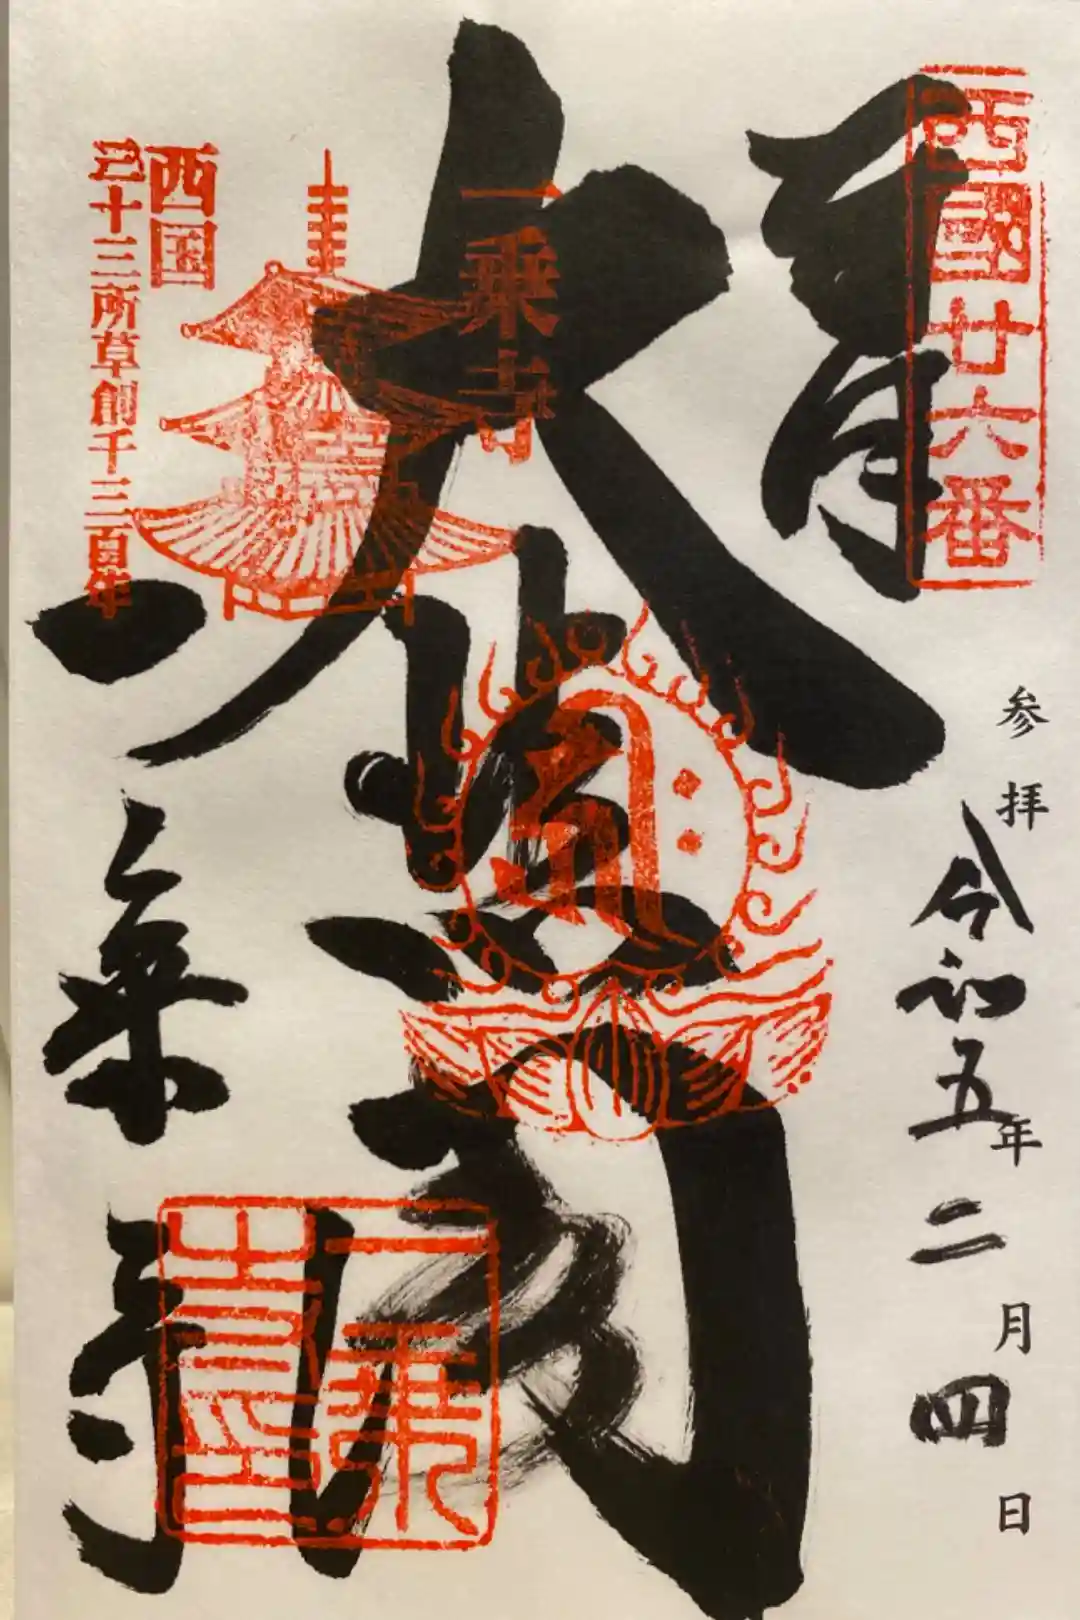 西國廿六番
奉拝
参拝 令和五年二月四日
大悲閣
一乗寺
西国
三十三所草創千三百年
一乗寺